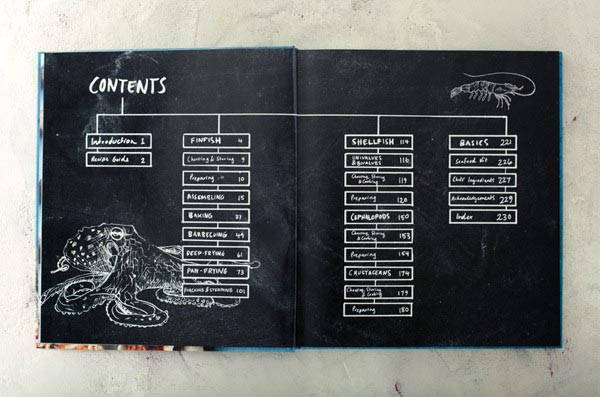 CONTENTS
Introduction 1
Recipe Guide 2
FINFISH 4
Choosing & Storing 9
Preparing 10
ASSEMBLING 15
BAKING 27
BARBECUING 49
DEEP-FRYING 61
PAN-FRYING 73
POACHING & STEAMING 101
SHELLFISH 114
UNIVALVES
& BIVALVES 116
Choosing, Storing
& Cooking 119
Preparing 120
CEPHALOPODS 150
Choosing, Storing
& Cooking 153
Preparing 154
CRUSTACEANS 174
Choosing, Storing
& Cooking 179
Preparing 180
BASICS 221
Seafood Kit 226
Chef Ingredients 227
Acknowledgements 229
Index 230